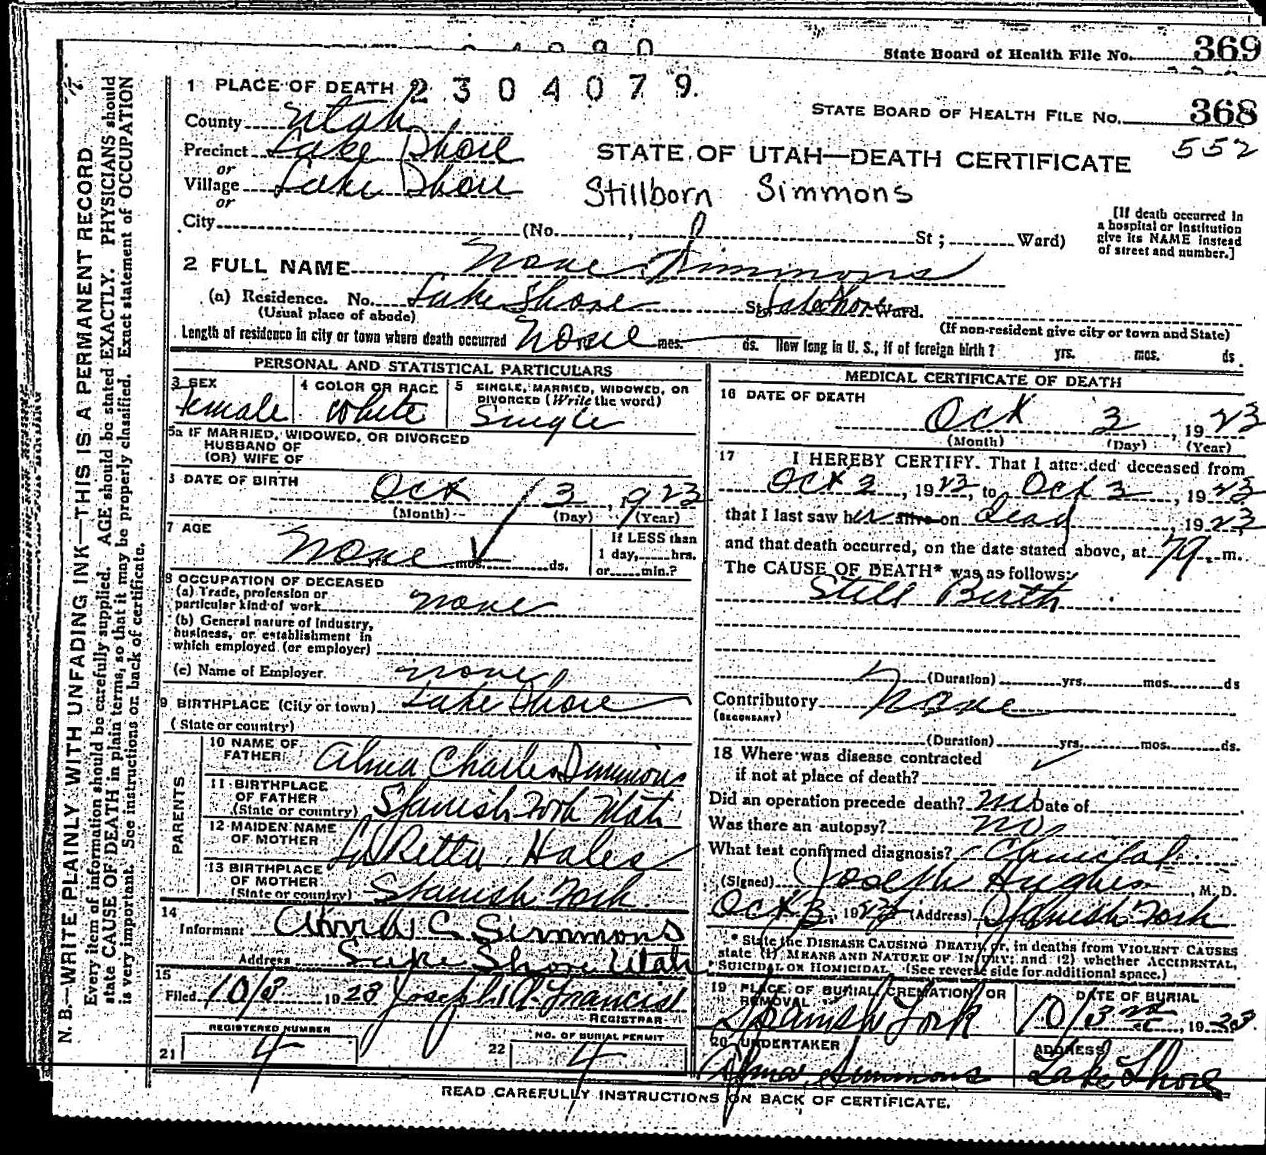 State Board of Health File No. 369
1 PLACE OF DEATH 2304079.
STATE BOARD OF HEALTH FILE No. 368
552
County Utah
Precinct Lake Shore
or
Village Lake Shore
or
City (No. , St ; Ward)
STATE OF UTAH—DEATH CERTIFICATE
Stillborn Simmons
[If death occurred in
a hospital or institution
give its NAME instead
of street and number.]
2 FULL NAME None Simmons
(a) Residence. No. Lake Shore St. Ward.
(Usual place of abode) (If non-resident give city or town and State)
Length of residence in city or town where death occurred None mos. ds. How long in U. S., if of foreign birth? yrs. mos. ds
PERSONAL AND STATISTICAL PARTICULARS
3 SEX
Female
4 COLOR OR RACE
White
5 SINGLE, MARRIED, WIDOWED, OR
DIVORCED (Write the word)
Single
5a IF MARRIED, WIDOWED, OR DIVORCED
HUSBAND OF
(OR) WIFE OF
DATE OF BIRTH Oct 3, 1923
(Month) (Day) (Year)
7 AGE
None mos. ds.
If LESS than
1 day, hrs.
or min.?
8 OCCUPATION OF DECEASED
(a) Trade, profession or
particular kind of work none
(b) General nature of industry,
business, or establishment in
which employed (or employer)
(c) Name of Employer none
9 BIRTHPLACE (City or town) Lake Shore
(State or country)
PARENTS
10 NAME OF
FATHER Alma Charles Simmons
11 BIRTHPLACE
OF FATHER
(State or country) Spanish Fork Utah
12 MAIDEN NAME
OF MOTHER LaRetta Hales
13 BIRTHPLACE
OF MOTHER
(State or country) Spanish Fork
14
Informant Alma C. Simmons
Address Lake Shore Utah
15
Filed 10/3 1923 Joseph A. Francis
REGISTRAR
21 REGISTERED NUMBER 4
22 NO. OF BURIAL PERMIT 4
MEDICAL CERTIFICATE OF DEATH
16 DATE OF DEATH
Oct 3, 1923
(Month) (Day) (Year)
17 I HEREBY CERTIFY. That I attended deceased from
Oct 3, 1923, to Oct 3, 1923
that I last saw her alive on dead, 1923,
and that death occurred, on the date stated above, at m.
The CAUSE OF DEATH* was as follows:
Still Birth
(Duration) yrs. mos. ds
Contributory None
(SECONDARY)
(Duration) yrs. mos. ds.
18 Where was disease contracted
if not at place of death?
Did an operation precede death? no Date of
Was there an autopsy? no
What test confirmed diagnosis? Clinical
(Signed) Joseph Hughes, M. D.
Oct 3, 1923 (Address) Spanish Fork
* State the DISEASE CAUSING DEATH, or, in deaths from VIOLENT CAUSES
state (1) MEANS AND NATURE OF INJURY; and (2) whether ACCIDENTAL,
SUICIDAL OR HOMICIDAL. (See reverse side for additional space.)
19 PLACE OF BURIAL, CREMATION, OR
REMOVAL
Spanish Fork
DATE OF BURIAL
10/3, 1923
20 UNDERTAKER
Alma Simmons
ADDRESS
Lake Shore
READ CAREFULLY INSTRUCTIONS ON BACK OF CERTIFICATE.
N. B.—WRITE PLAINLY WITH UNFADING INK—THIS IS A PERMANENT RECORD
Every item of information should be carefully supplied. AGE should be stated EXACTLY. PHYSICIANS should
state CAUSE OF DEATH in plain terms, so that it may be properly classified. Exact statement of OCCUPATION
is very important. See instructions on back of certificate.